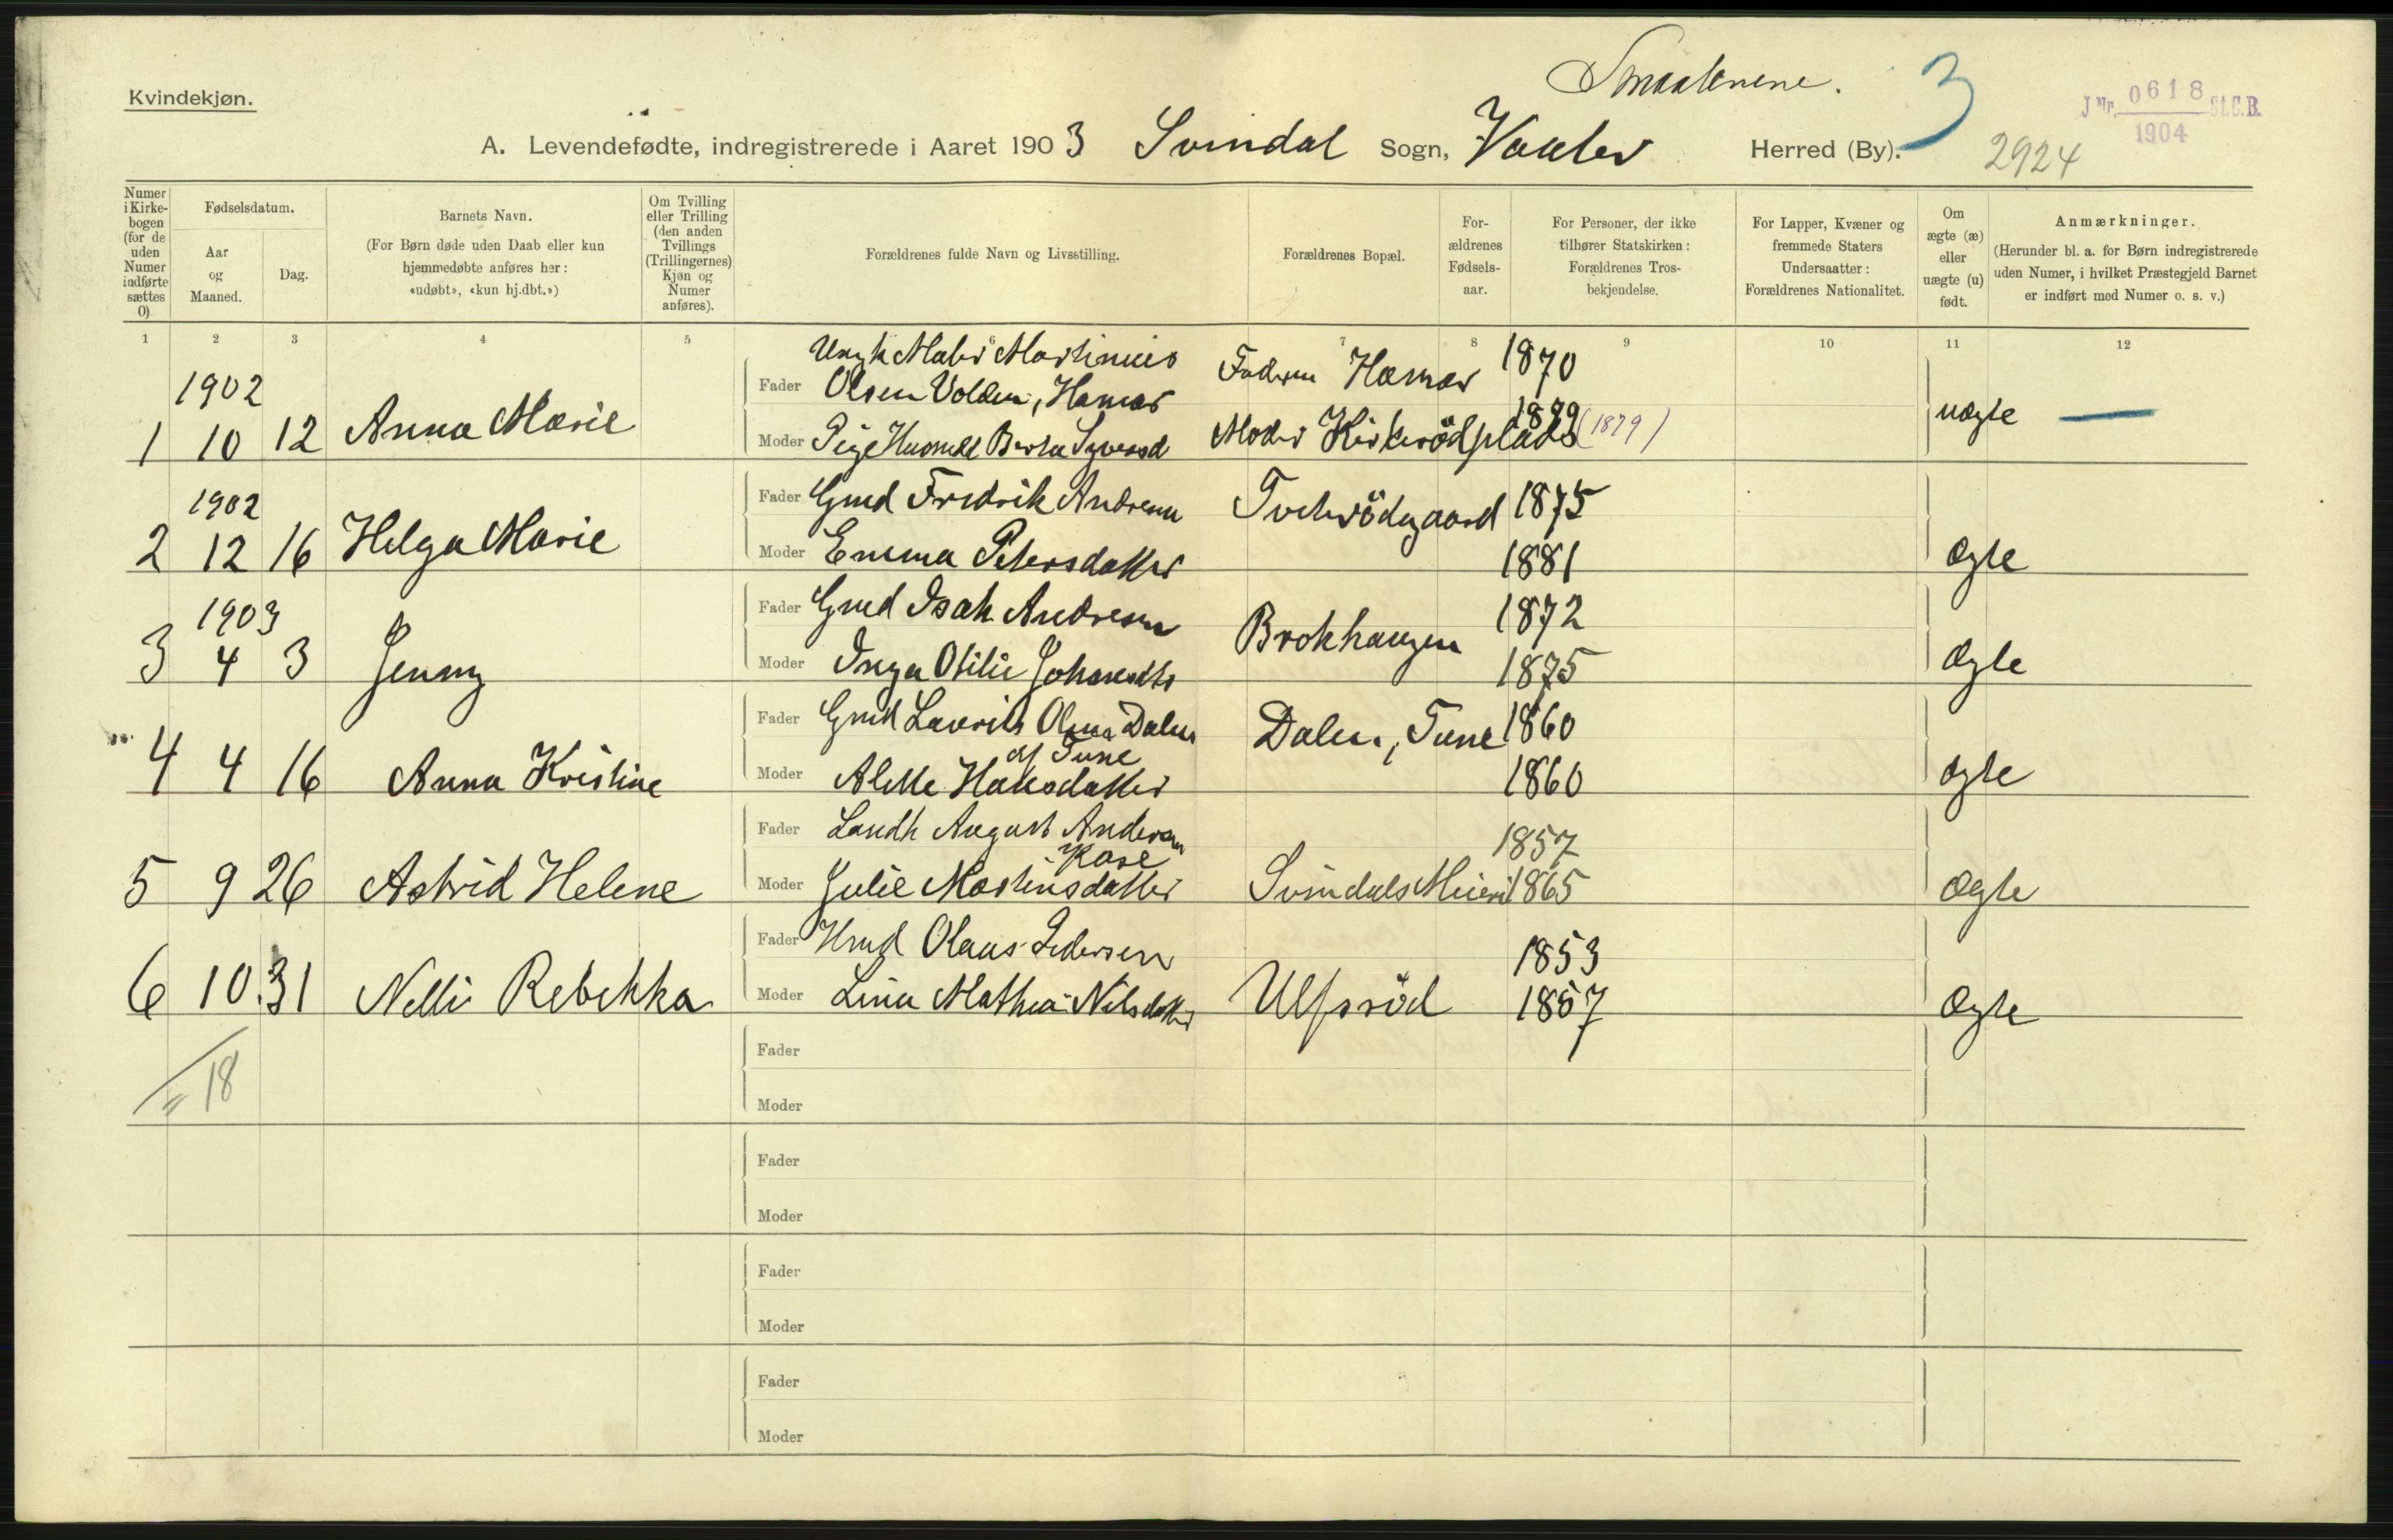 Smaalenene.
3
Kvindekjøn.
J Nr. 0618 St.C.B.
1904
A. Levendefødte, indregistrerede i Aaret 1903 Svindal Sogn, Vaaler Herred (By).
2924
Numer i Kirke-bogen (for de uden Numer indførte sættes 0)
Fødselsdatum.
Aar og Maaned.
Dag.
Barnets Navn.
(For Børn døde uden Daab eller kun hjemmedøbte anføres her: «udøbt», «kun hj.dbt.»)
Om Tvilling eller Trilling (den anden Tvillings (Trillingernes) Kjøn og Numer anføres).
Forældrenes fulde Navn og Livsstilling.
Forældrenes Bopæl.
For-ældrenes Fødsels-aar.
For Personer, der ikke tilhører Statskirken: Forældrenes Tros-bekjendelse.
For Lapper, Kvæner og fremmede Staters Undersaatter: Forældrenes Nationalitet.
Om ægte (æ) eller uægte (u) født.
Anmærkninger.
(Herunder bl. a. for Børn indregistrerede uden Numer, i hvilket Præstegjeld Barnet er indført med Numer o. s. v.)
1 2 3 4 5 6 7 8 9 10 11 12
Ungk Maler Martinius
1902 Fader Olsen Volden, Hamar Faderen Hamar 1870
1 10 12 Anna Marie Moder Pige Berta Syversd Moder Kirkerödplads 1879 (1879) uægte —
1902 Fader Gmd Fredrik Andresen Tveterödegaard 1875
2 12 16 Helga Marie Moder Emma Petersdatter 1881 Ægte
1903 Fader Gmd Isak Andresen Brokhaugen 1872
3 4 3 Jenny Moder Inga Otilie Johansdtr 1875 Ægte
Fader Gmd Laurits Olsen Dalen Dalen, Tune 1860
af Tune
4 4 16 Anna Kristine Moder Alette Hansdatter 1860 Ægte
Fader Landh August Andersen 1857
Kase
5 9 26 Astrid Helene Moder Julie Martinsdatter Svindals Meieri 1865 Ægte
Fader Hmd Olaus Pedersen 1853
6 10 31 Nelli Rebekka Moder Lina Mathea Nilsdatter Ulfsröd 1857 Ægte
Fader
18
Moder
Fader
Moder
Fader
Moder
Fader
Moder